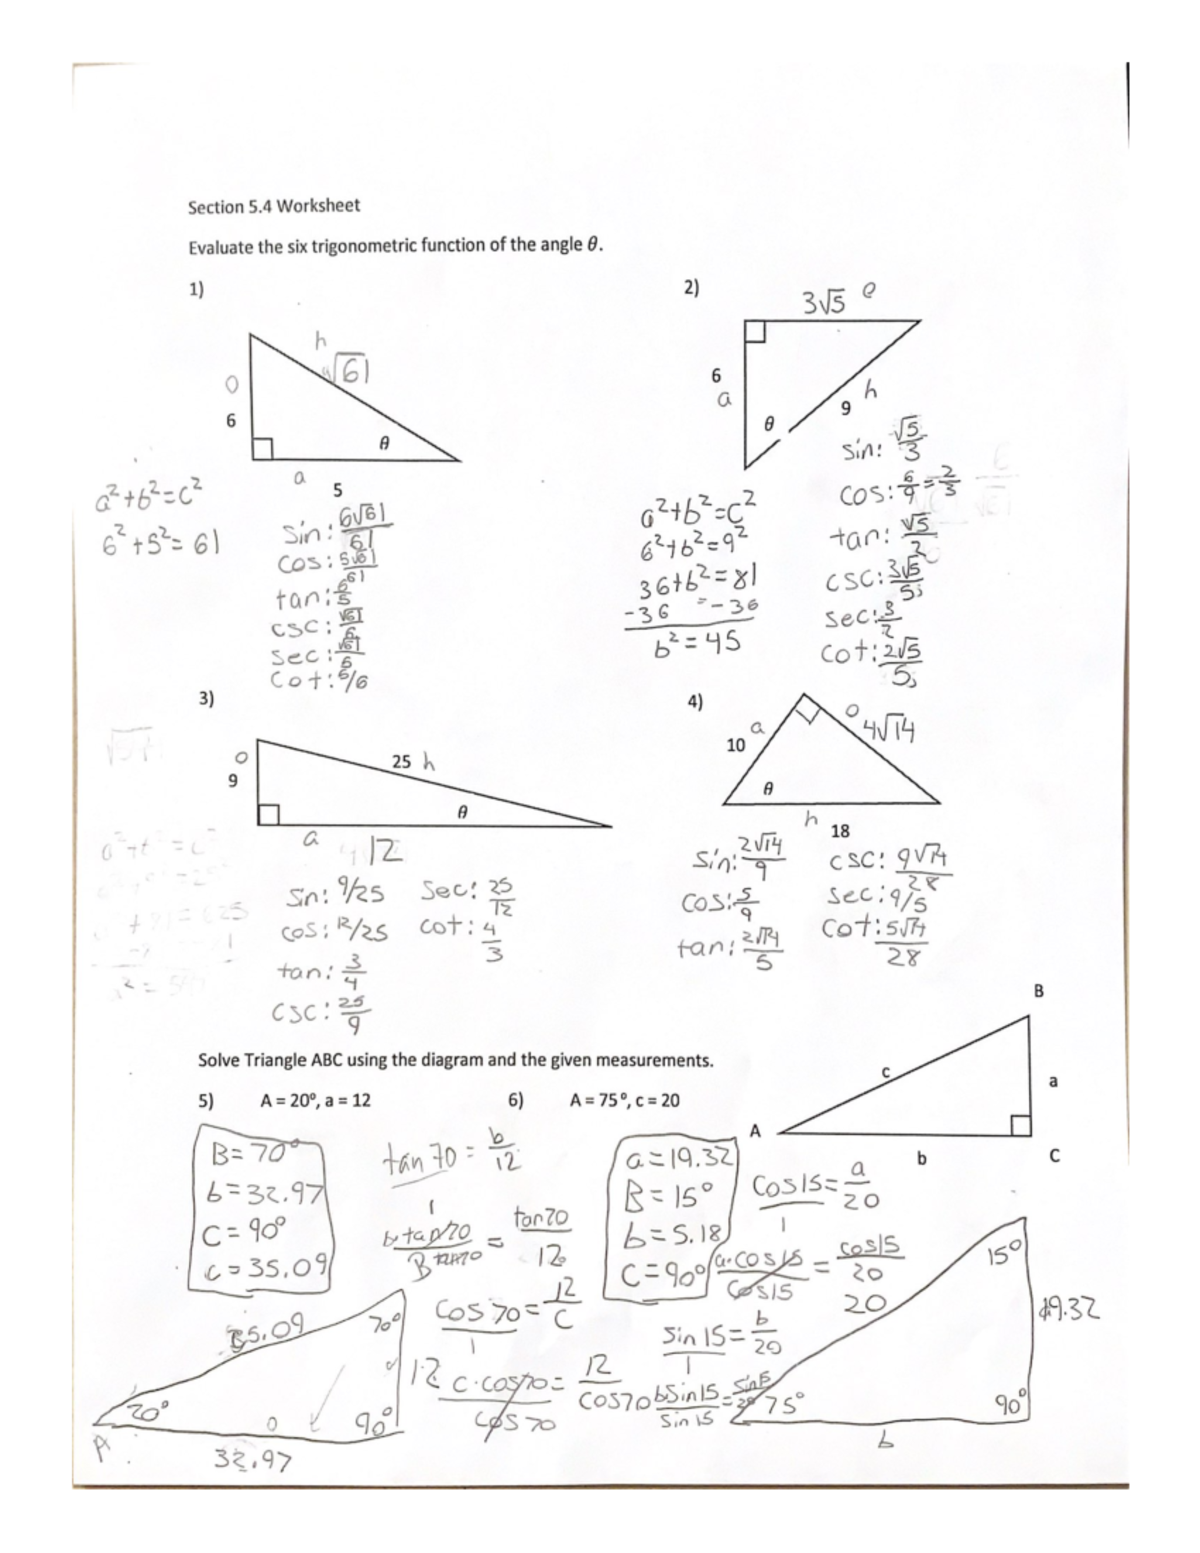 Section 5.4 Worksheet
Evaluate the six trigonometric function of the angle θ.
1)
h
√61
o
6
θ
a
5
a²+b²=c²
6²+5²=61
sin: 6√61/61
cos: 5√61/61
tan: 6/5
csc: √61/6
sec: √61/5
cot: 5/6
2)
3√5 o
6
a
h
9
θ
a²+b²=c²
6²+b²=9²
36+b²=81
-36 = -36
b²=45
sin: √5/3
cos: 6/9=2/3
tan: √5/2
csc: 3√5/5
sec: 3/2
cot: 2√5/5
3)
o
9
25 h
θ
a
12
sin: 9/25
cos: 12/25
tan: 3/4
csc: 25/9
sec: 25/12
cot: 4/3
4)
a
10
o
4√14
θ
h
18
sin: 2√14/9
cos: 5/9
tan: 2√14/5
csc: 9√14/28
sec: 9/5
cot: 5√14/28
Solve Triangle ABC using the diagram and the given measurements.
B
c
a
A
b
C
5) A = 20°, a = 12
B=70°
b=32.97
C=90°
c=35.09
tan 70 = b/12
cos 70 = 12/c
c·cos70/cos 70 = 12/cos70
35.09
70°
12
20°
o
90°
A
32.97
6) A = 75°, c = 20
a=19.32
B=15°
b=5.18
C=90°
cos15=a/20
a·cos15/cos15 = cos15/20
20
sin 15 = b/20
bsin15/sin 15
15°
19.32
75°
90°
b